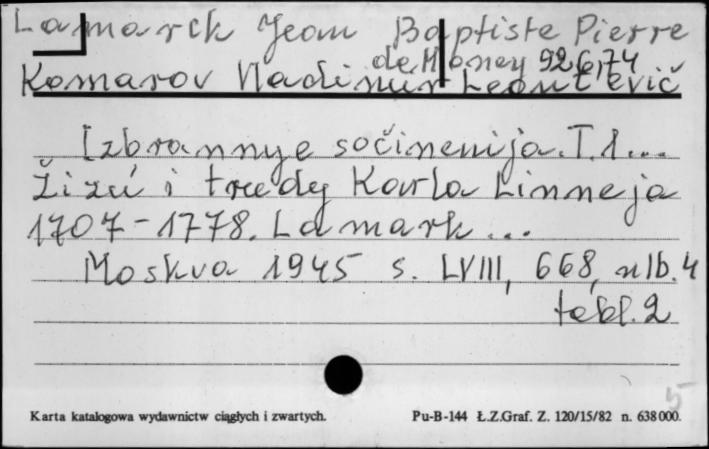 Lamarck Jean Baptiste Pierre
de Money 926,74
Komarov Vladimir Leont'evič
Izbrannye sočinenija.T.1...
Žizń i trudy Karla Linneja
1707-1778. Lamark ...
Moskva 1945 s. LVIII, 668, nlb. 4
tabl. 2
5
Karta katalogowa wydawnictw ciągłych i zwartych.
Pu-B-144 Ł.Z.Graf. Z. 120/15/82 n. 638000.